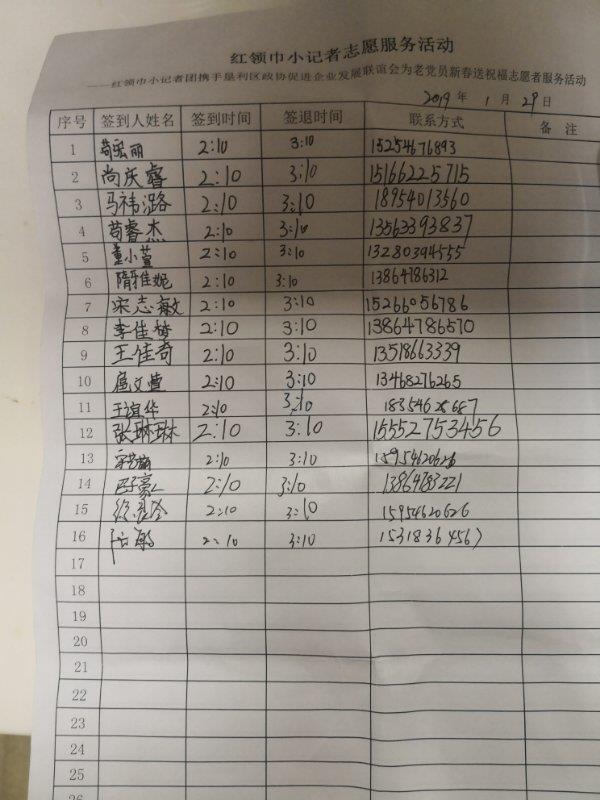 红领巾小记者志愿服务活动
——红领巾小记者团携手垦利区政协促进企业发展联谊会为老党员新春送祝福志愿者服务活动
2019 年 1 月 29 日
序号 签到人姓名 签到时间 签退时间 联系方式 备 注
1 苟宏丽 2:10 3:10 15254676893
2 尚庆睿 2:10 3:10 15166225715
3 马祎潞 2:10 3:10 18954013560
4 苟睿杰 2:10 3:10 13563393837
5 董小萱 2:10 3:10 13280394555
6 隋雅妮 2:10 3:10 13864786312
7 宋志敏 2:10 3:10 15266056786
8 李佳梦 2:10 3:10 13864786570
9 王佳奇 2:10 3:10 13518663339
10 扈文萱 2:10 3:10 13468276265
11 王谊华 2:10 3:10 18354628687
12 张琳琳 2:10 3:10 15552753456
13 2:10 3:10 15954620626
14 2:10 3:10 13864783221
15 2:10 3:10 15954620626
16 2:10 3:10
17
18
19
20
21
22
23
24
25
26